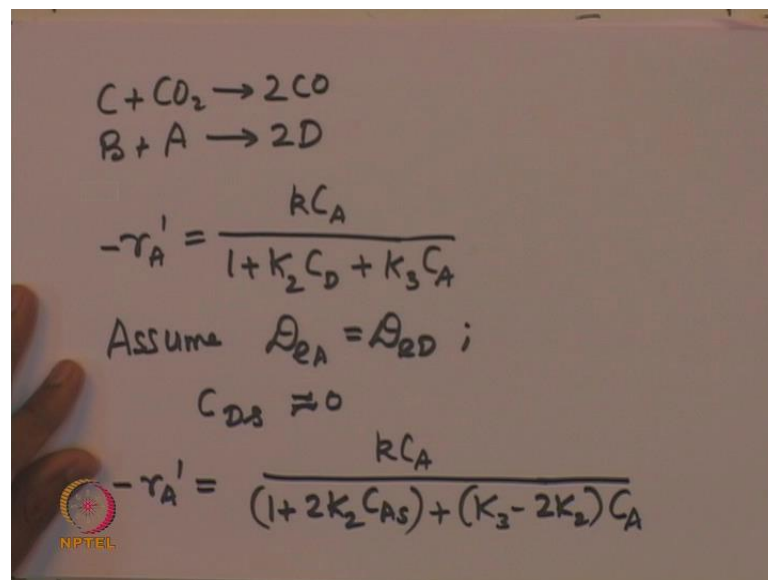 C + CO₂ → 2CO
B + A → 2D
-rA' = kCA / (1 + K₂CD + K₃CA)
Assume DeA = DeD ;
CDs ≈ 0
-rA' = kCA / ((1 + 2K₂CAs) + (K₃ - 2K₂)CA)
NPTEL